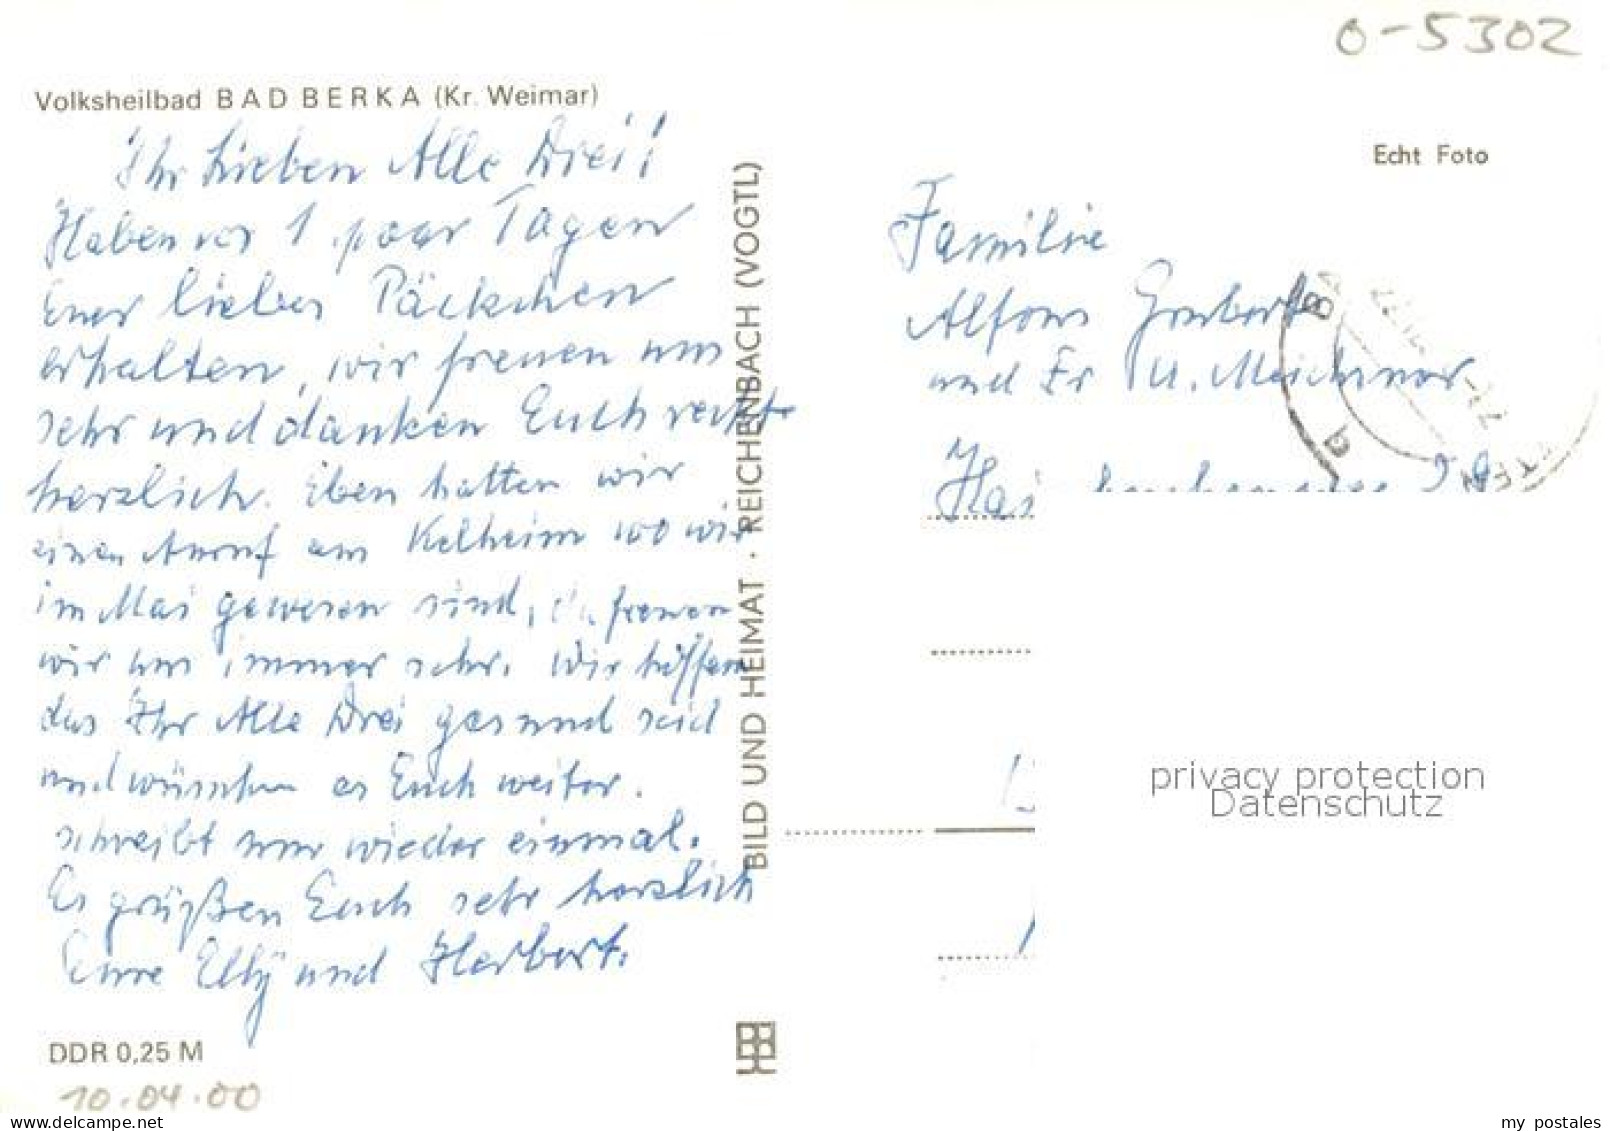 0-5302
Volksheilbad BAD BERKA (Kr. Weimar)
Echt Foto
Ihr Lieben Alle Drei!
Haben vor 1 paar Tagen
Euer liebes Päckchen
erhalten, wir freuen uns
sehr und danken Euch recht
herzlich. Eben hatten wir
einen Anruf aus Kelheim wo wir
im Mai gewesen sind, freuen
wir uns immer sehr. Wir hoffen
das Ihr Alle Drei gesund seid
und wünschen es Euch weiter.
schreibt nur wieder einmal.
Es grüßen Euch sehr herzlich
Eure Elly und Herbert.
DDR 0,25 M
10.04.00
BILD UND HEIMAT · REICHENBACH (VOGTL)
Familie
Alfons
und Fr M.
privacy protection
Datenschutz
www.delcampe.net
my postales